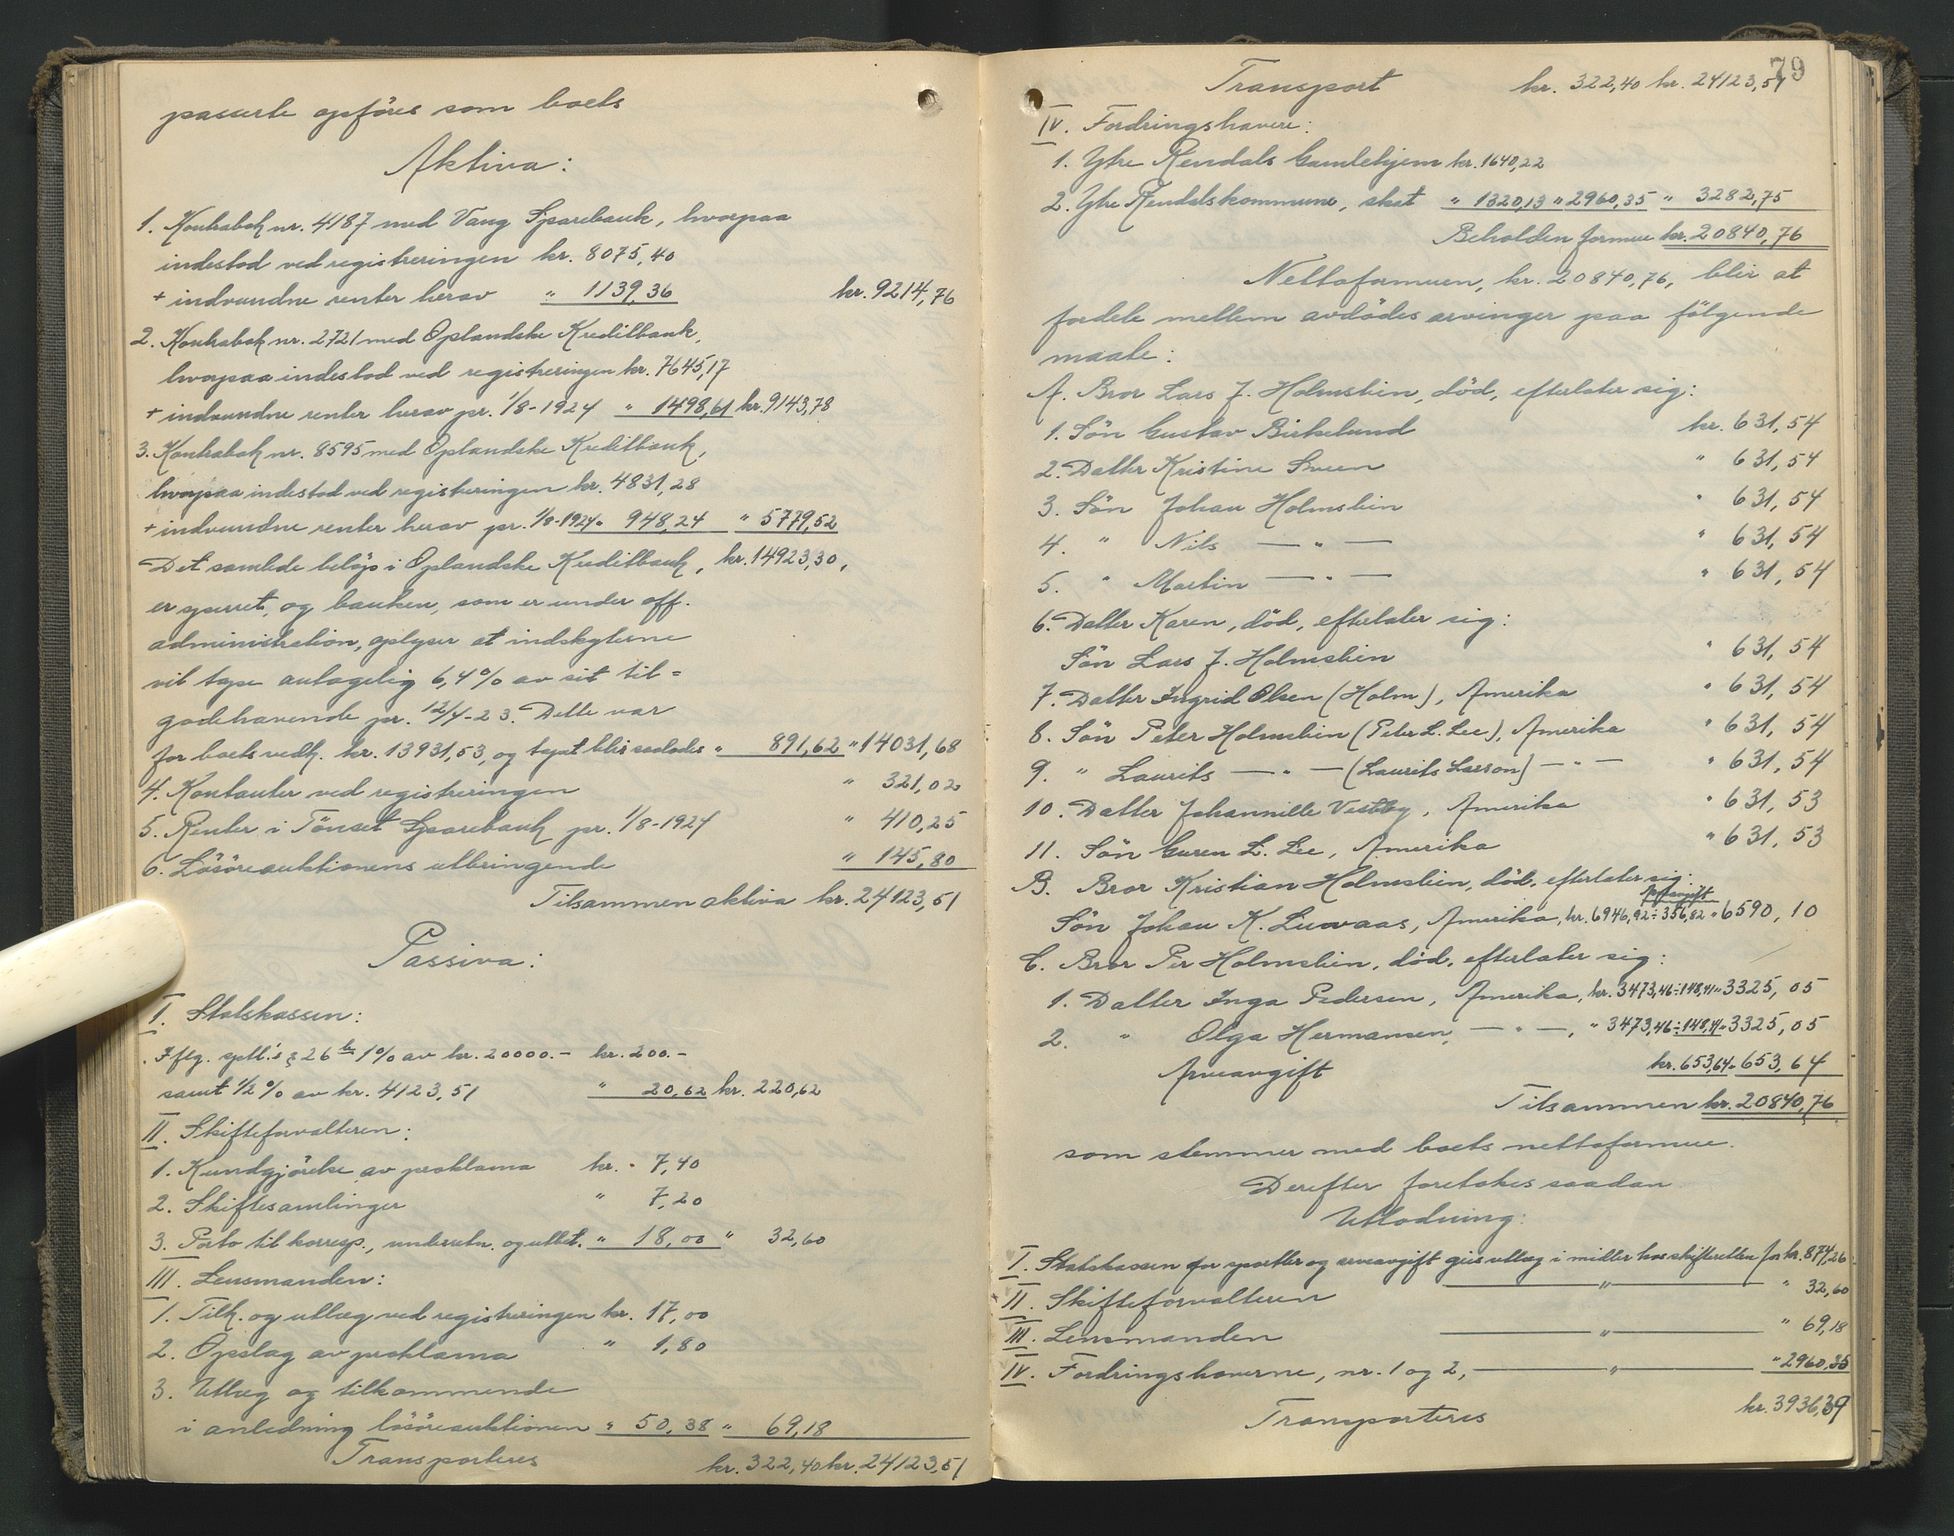 passerte opföres som boets
Aktiva:
1. Kontrabok nr. 4187 med Vang Sparebank, hvorpaa
indestod ved registreringen kr. 8075,40
+ indvundne renter herav " 1139,36 kr. 9214,76
2. Kontrabok nr. 2721 med Oplandske Kreditbank,
hvorpaa indestod ved registreringen kr. 7645,17
+ indvundne renter herav pr. 1/8-1924 " 1498,61 kr. 9143,78
3. Kontrabok nr. 8595 med Oplandske Kreditbank,
hvorpaa indestod ved registreringen kr. 4831,28
+ indvundne renter herav pr. 1/8-1924 " 948,24 " 5779,52
Det samlede belöp i Oplandske Kreditbank, kr. 14923,30,
er sperret, og banken, som er under off.
administration, oplyser at indskyterne
vil tape antagelig 6,4% av sit til=
godehavende pr. 12/4-23. Dette var
for boets vedk. kr. 13931,53, og tapet blir saaledes " 891,62 " 14031,68
4. Kontanter ved registreringen " 321,02
5. Renter i Tönset Sparebank pr. 1/8-1924 " 410,25
6. Lösöreauktionens utbringende " 145,80
Tilsammen aktiva kr. 24123,51
Passiva:
I. Statskassen:
Iflg. sptl.'s § 26 1% av kr. 20000.- kr. 200.-
samt 1/2% av kr. 4123,51 " 20,62 kr. 220,62
II. Skifteforvalteren:
1. Kundgjörelse av proklama kr. 7,40
2. Skiftesamlinger " 7,20
3. Porto til korresp., underretn. og utbet. " 18,00 " 32,60
III. Lensmanden:
1. Tilk. og utlæg ved registreringen kr. 17,00
2. Opslag av proklama " 1,80
3. Utlæg og tilkommende
i anledning lösöreauktionen " 50,38 " 69,18
Transporteres kr. 322,40 kr. 24123,51
79
Transport kr. 322,40 kr. 24123,51
IV. Fordringshavere:
1. Ytre Rendals Gamlehjem kr. 1640,22
2. Ytre Rendals kommune, skat " 1320,13 " 2960,35 " 3282,75
Beholden formue kr. 20840,76
Nettoformuen, kr. 20840,76, blir at
fordele mellem avdödes arvinger paa fölgende
maate:
A. Bror Lars J. Holmstien, död, efterlater sig:
1. Sön Gustav Birkelund kr. 631,54
2. Datter Kristine Sveen " 631,54
3. Sön Johan Holmstien " 631,54
4. " Nils — " — " 631,54
5. " Martin — " — " 631,54
6. Datter Karen, död, efterlater sig:
Sön Lars J. Holmstien " 631,54
7. Datter Ingrid Olsen (Holm), Amerika " 631,54
8. Sön Peter Holmstien (Peter L. Lee), Amerika " 631,54
9. " Laurits — " — (Laurits Larson) — " — " 631,54
10. Datter Johannille Vestby, Amerika " 631,53
11. Sön Guren L. Lee, Amerika " 631,53
B. Bror Kristian Holmstien, död, efterlater sig:
Arveavgift
Sön Johan K. Livaas, Amerika, kr. 6946,92 ÷ 356,82 " 6590,10
C. Bror Per Holmstien, död, efterlater sig:
1. Datter Inga Pedersen, Amerika, kr. 3473,46 ÷ 148,41 " 3325,05
2. " Olga Hermansen, — " —, " 3473,46 ÷ 148,41 " 3325,05
Arveavgift kr. 653,64 " 653,64
Tilsammen kr. 20840,76
som stemmer med boets nettoformue.
Derefter foretokes saadan
Utlodning:
I. Statskassen for sportler og arveavgift gis utlæg i midler hos skifteretten for kr. 874,26
II. Skifteforvalteren — " — " 32,60
III. Lensmanden — " — " 69,18
IV. Fordringshaverne, nr. 1 og 2, — " — " 2960,35
Transporteres kr. 3936,39